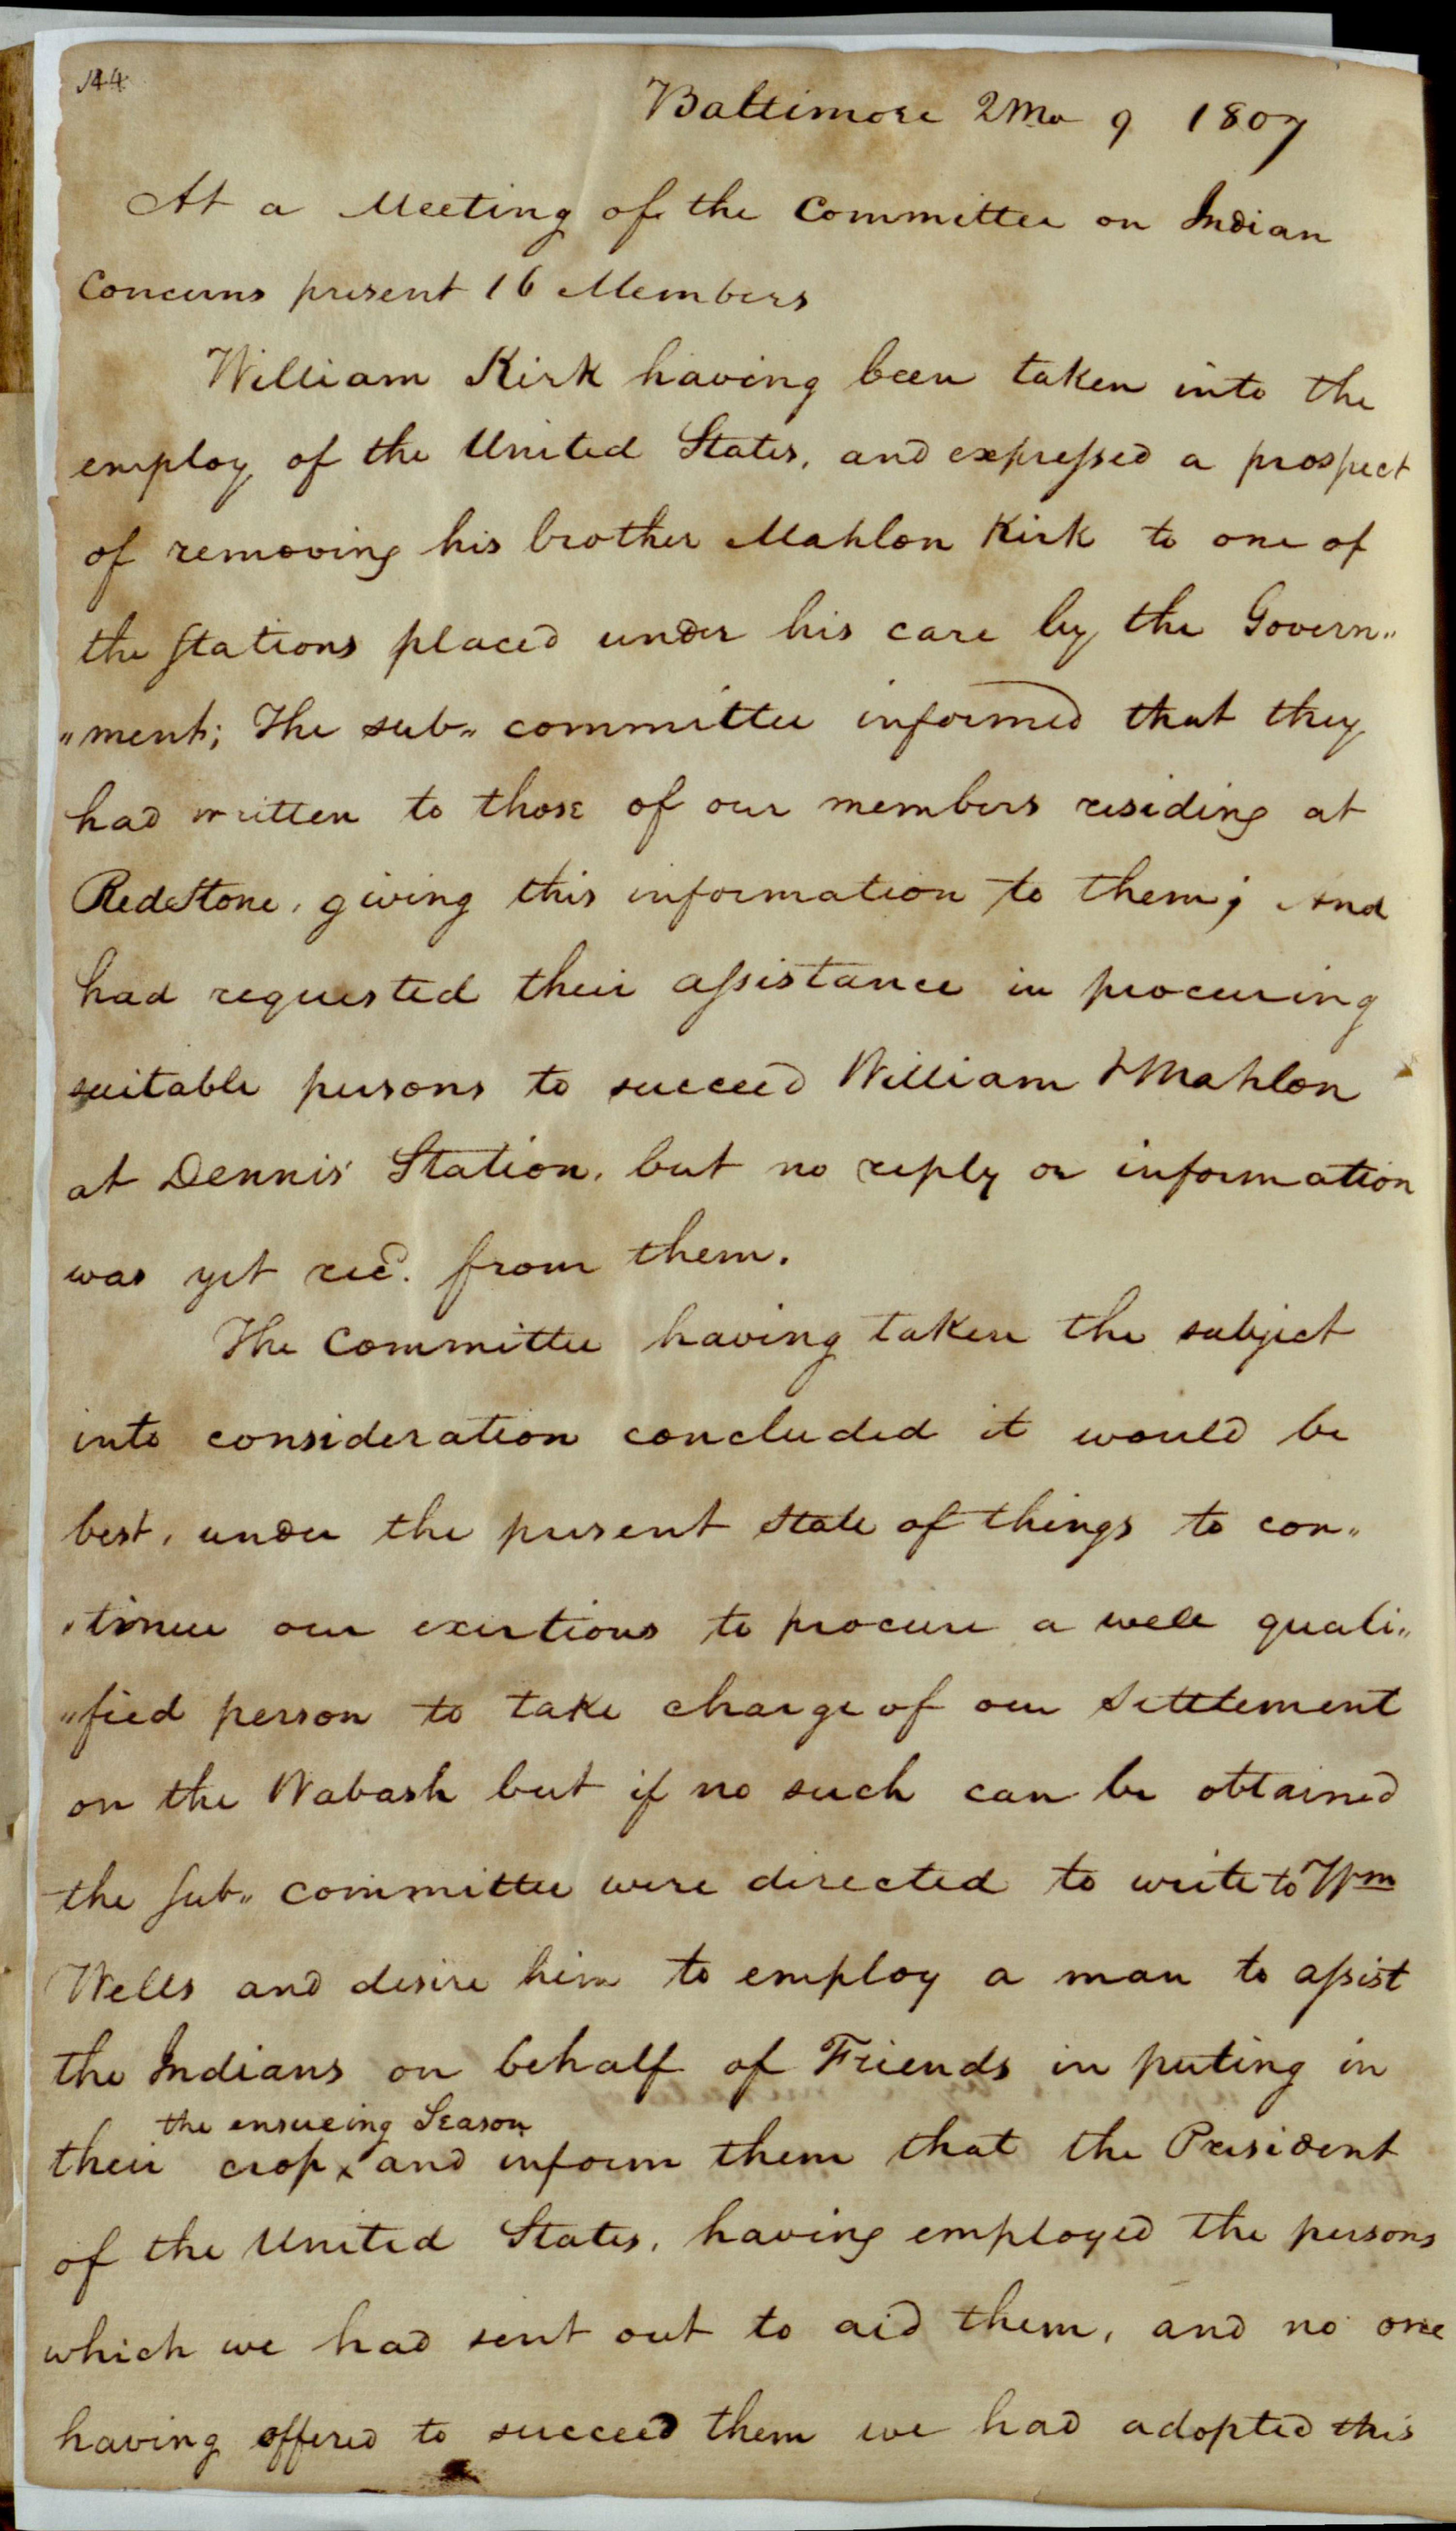 144
Baltimore 2Mo 9 1807
At a Meeting of the Committee on Indian
Concerns present 16 Members
William Kirk having been taken into the
employ of the United States, and expressed a prospect
of removing his brother Mahlon Kirk to one of
the Stations placed under his care by the Govern„
„ment; The sub„ committee informed that they
had written to those of our members residing at
RedStone, giving this information to them; And
had requested their assistance in procuring
suitable persons to succeed William & Mahlon
at Dennis' Station, but no reply or information
was yet recd. from them.
The Committee having taken the subject
into consideration concluded it would be
best, under the present State of things to con„
„tinue our exertions to procure a well quali„
„fied person to take charge of our Settlement
on the Wabash but if no such can be obtained
the Sub„ committee were directed to write to Wm
Wells and desire him to employ a man to assist
the Indians on behalf of Friends in puting in
the ensueing Season
their crop x and inform them that the President
of the United States, having employed the persons
which we had sent out to aid them, and no one
having offered to succeed them we had adopted this